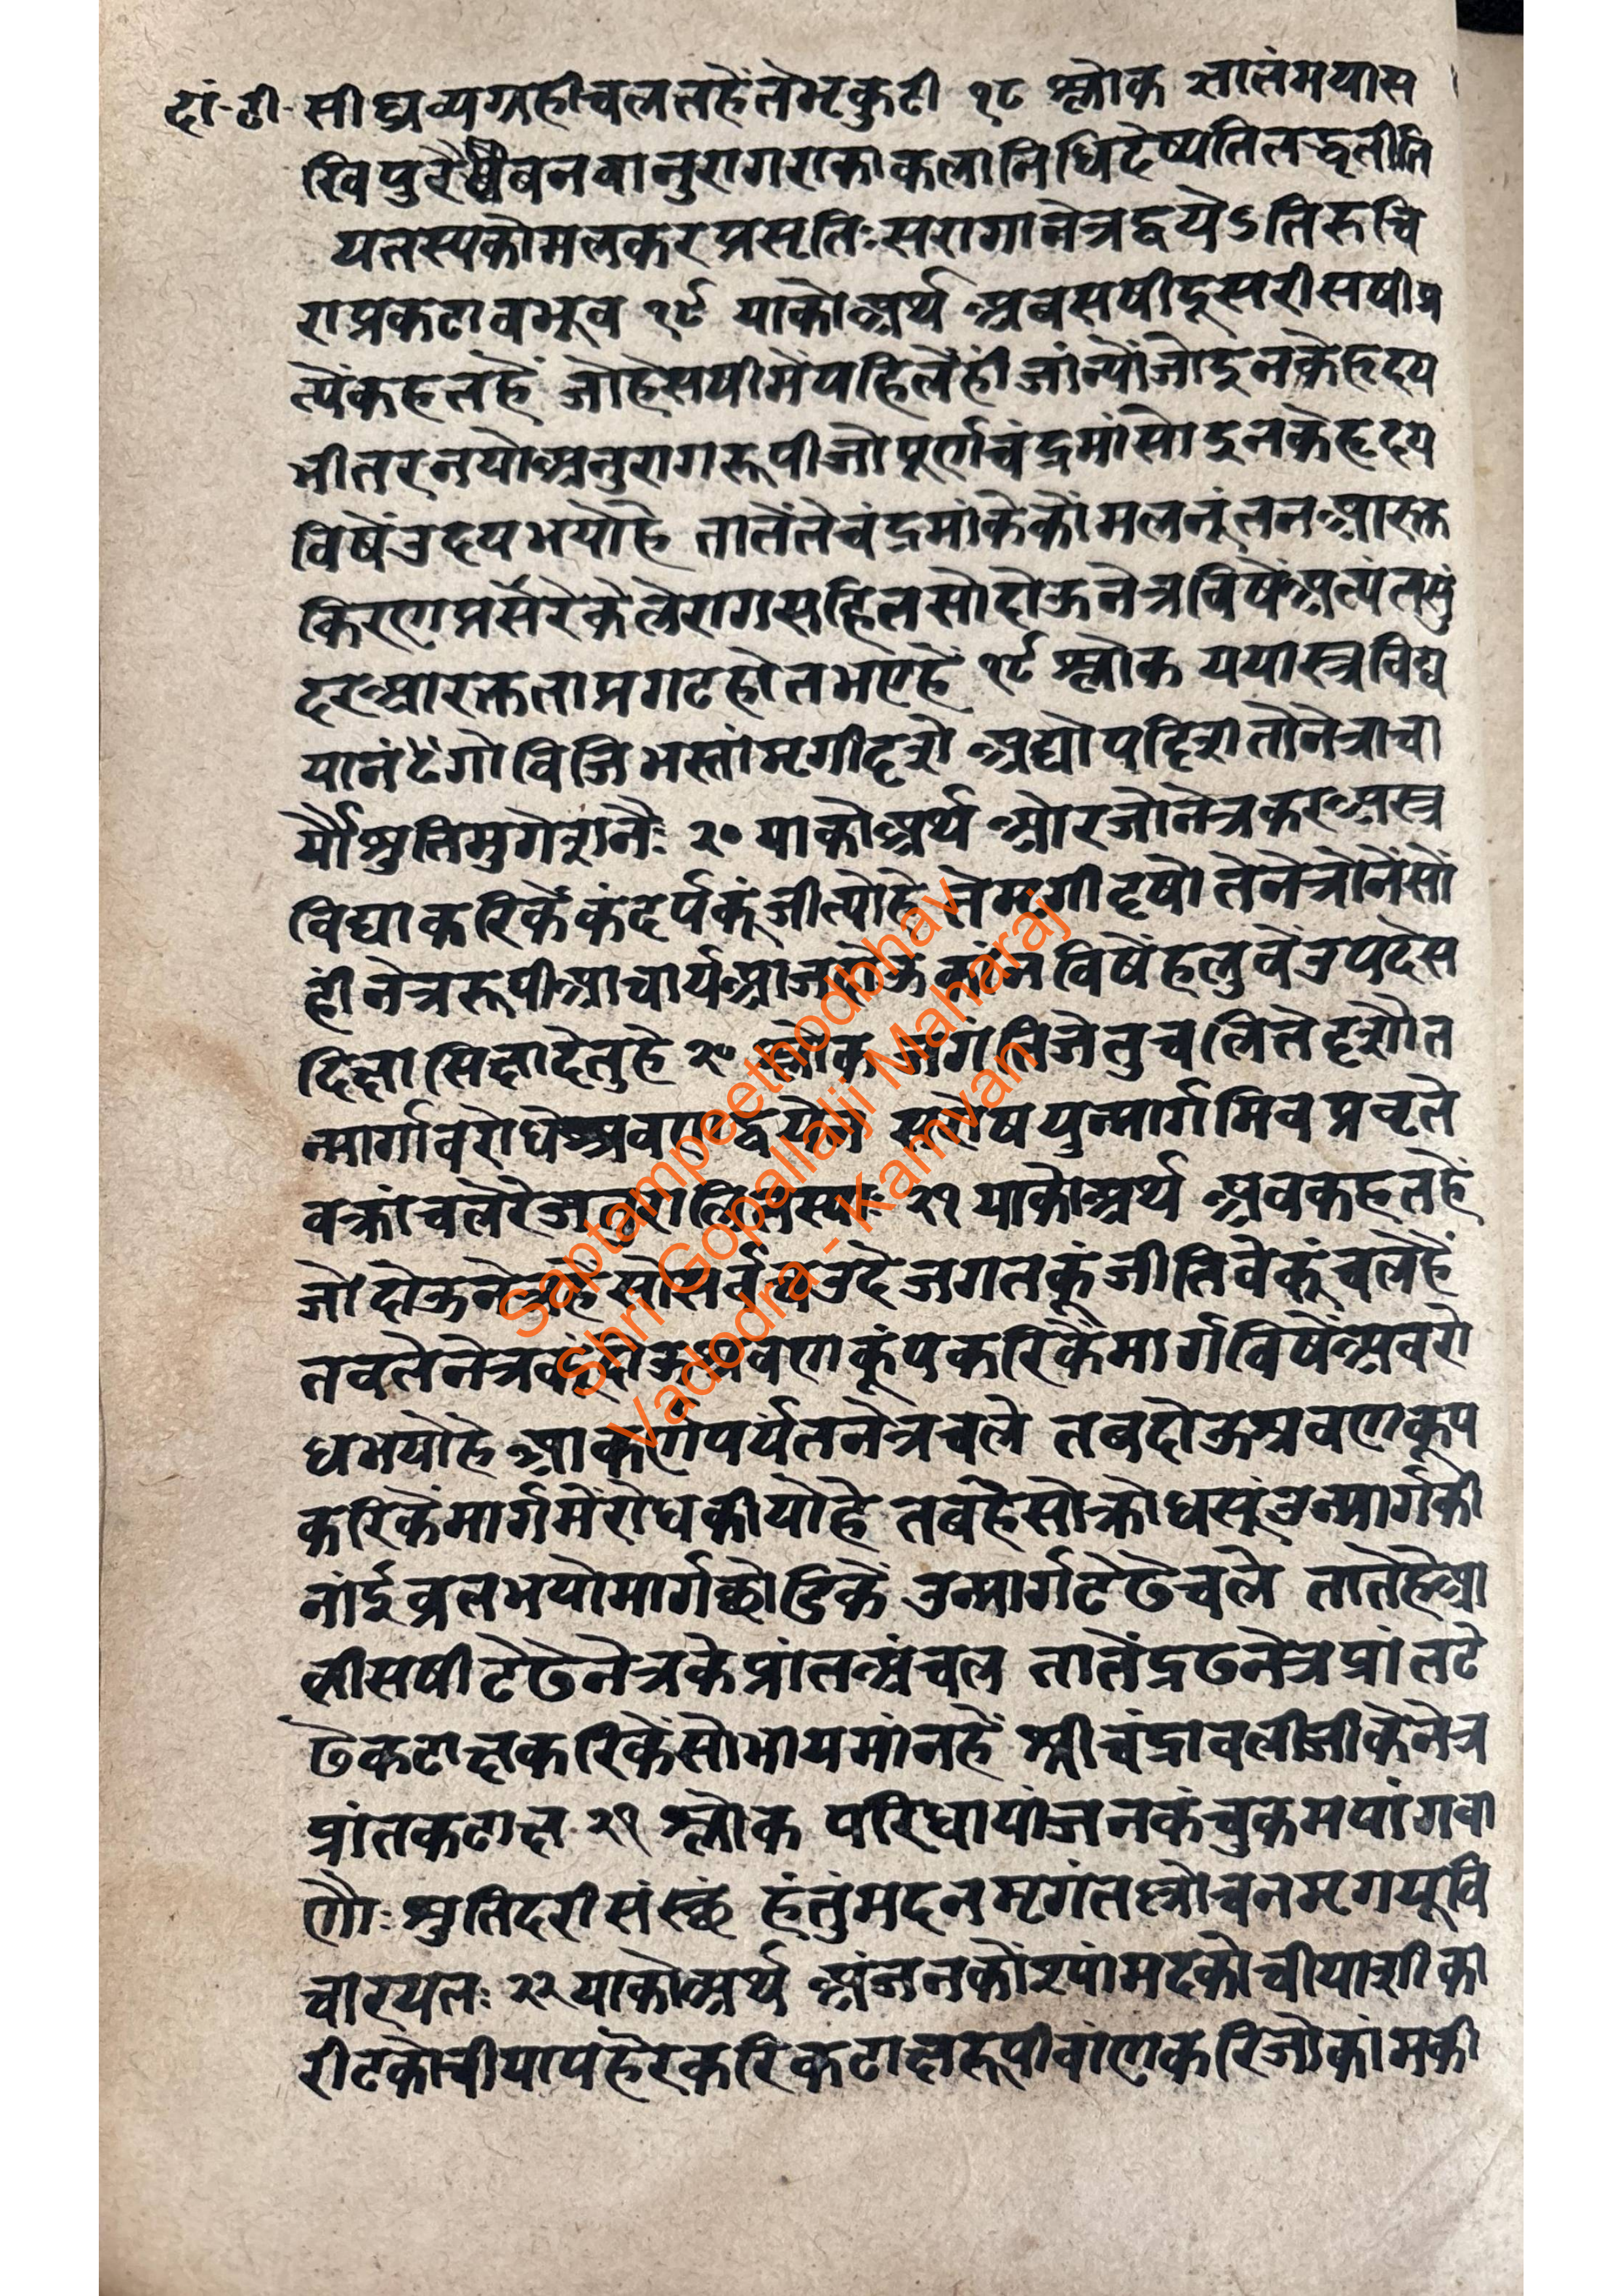 दां-टी- सीघ्रव्यग्रहीचलतहेंतेभृकुटी १८ श्लोक ज्ञातंमयास
खिपुरैवैवनवानुरागराकाकलानिधिरुदेष्यतितद्धृतीति
यतस्यकोमलकरप्रसृतिःसरागानेत्रद्वयेऽतिरुचि
राप्रकटाबभूव १९ याकोअर्थ अबसषीदूसरीसषीप्र
त्यैंकहतहैं जोहेसषीमैंपहिलेंहीजांन्योंजोइनकेहृदय
भीतरनयोअनुरागरूपीजोपूर्णचंद्रमांसोइनकेहृदय
विषेंउदयभयोहै तातेंतेचंद्रमांकेकोंमलनूंतनआरक्त
किरणप्रसरेकेलेरागसहितसोदोऊनेत्रविषेंअत्यंतसुं
दरआरक्तताप्रगटहोतभएहें १९ श्लोक ययास्त्रविद्य
यानंगोविजिभस्तांमृगीदृशो अद्योपदिशतोनेत्राचा
र्यौश्रुतिमुगेशनैः २० याकोअर्थ ओरजोनेत्रकरअस्त्र
विद्याकरिकेंकंदर्पकूंजीत्योहे तेमृगीदृषो तेनेत्रोनेंसों
हीनेत्ररूपीआचार्यआजदोऊकांनविषेंहलुवेंउपदेस
दिक्षासिक्षादेतुहे २० श्लोक जगंतिजेतुचलितेदृशौत
न्मार्गावरोधेश्रवणद्वयेन सरोषयुन्मार्गमिवप्रवृते
वक्रांचलेरेजतुरालितस्याः २१ याकोअर्थ अबकहतहें
जोदोऊनेत्रहेंसोसर्वत्रउदैजगतकूंजीतिवेकूंचलेहें
तबतेनेत्रकूंदोऊश्रवणकूंपकरिकेंमार्गविषेंअवरो
धभयोहे आकर्णपर्यंतनेत्रचले तबदोऊश्रवणकूप
करिकेंमार्गमेंरोधकीयोहे तबहैसोक्रोधसूंउन्मार्गकी
नांईव्रतभयोमार्गछोडिकें उन्मार्गटेढेचले तातेहेआ
लीसषीटेढेनेत्रकेप्रांतअंचल तातेंद्रढनेत्रप्रांतटे
ढेकटाक्षकरिकेंसोभायमांनहें श्रीचंद्रावलीजीकेनेत्र
प्रांतकटाक्ष २१ श्लोक परिधायांजनकंचुकमपांगवा
णैः श्रुतिदरीसंस्छं हंतुंमदनमृगंतल्लोचनमृगयूवि
चारयतः २२ याकोअर्थ अंजनकोंश्यांमटकोचीयाशीका
रीटकोचीयापहेरेकरिकटाक्षरूपीबांणकरिज्योकांमकी